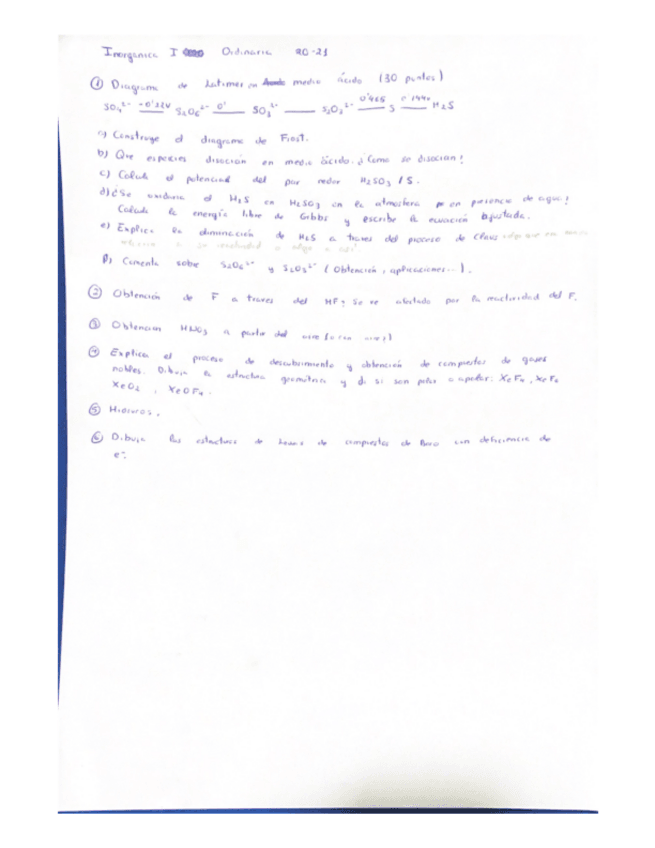 Inorganica I Ordinaria 20-21
① Diagrama de Latimer en medio ácido (30 puntos)
SO4 2- -0'224 S2O6 2- 0' SO3 2- ___ S2O3 2- 0'465 S 0'144 H2S
a) Construye el diagrama de Frost.
b) Que especies disocian en medio ácido. ¿Como se disocian?
c) Calcula el potencial del par redox H2SO3 / S.
d) ¿Se oxidaria el H2S en H2SO3 en la atmosfera en presencia de agua?
Calcula la energía libre de Gibbs y escribe la ecuación ajustada.
e) Explica la eliminación de H2S a traves del proceso de Claus
f) Comenta sobre S2O6 2- y S2O3 2- (Obtención, aplicaciones...).
② Obtención de F a traves del HF? Se ve afectado por la reactividad del F.
③ Obtencion HNO3 a partir del aire
④ Explica el proceso de descubrimiento y obtención de compuestos de gases
nobles. Dibuja la estructura geométrica y di si son polar o apolar: XeF4, XeF2
XeO2, XeOF4.
⑤ Hidruros.
⑥ Dibuja las estructura de Lewis de compuestos de Boro con deficiencia de
e-.